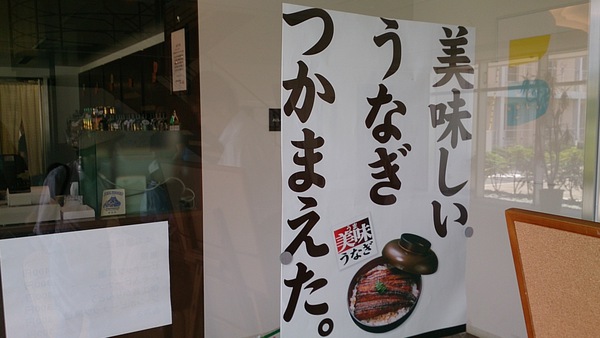 美味しい
うなぎ
つかまえた。
美味
うなぎ